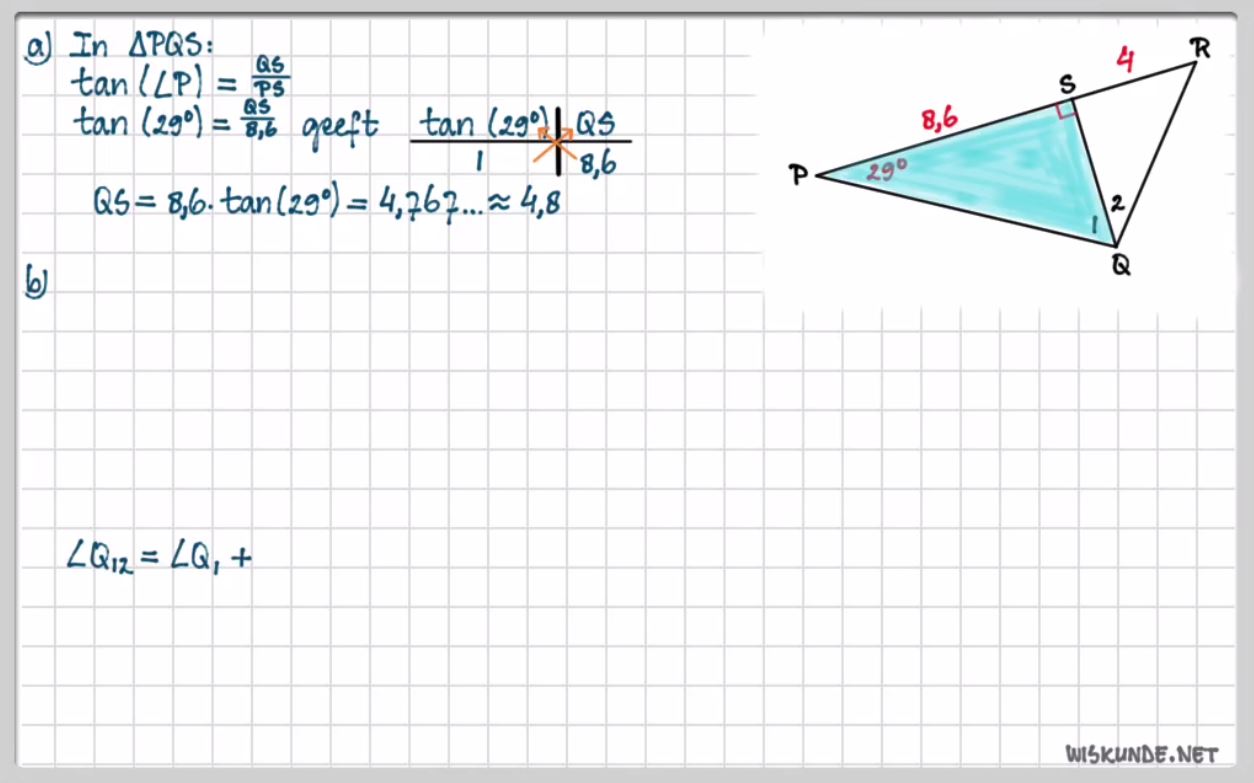 a) In ΔPQS:
tan (∠P) = QS/PS
tan (29°) = QS/8,6 geeft tan (29°) | QS
1 | 8,6
QS = 8,6 · tan (29°) = 4,767... ≈ 4,8
b)
∠Q₁₂ = ∠Q₁ +
R
4
S
8,6
P
29°
2
1
Q
WISKUNDE.NET